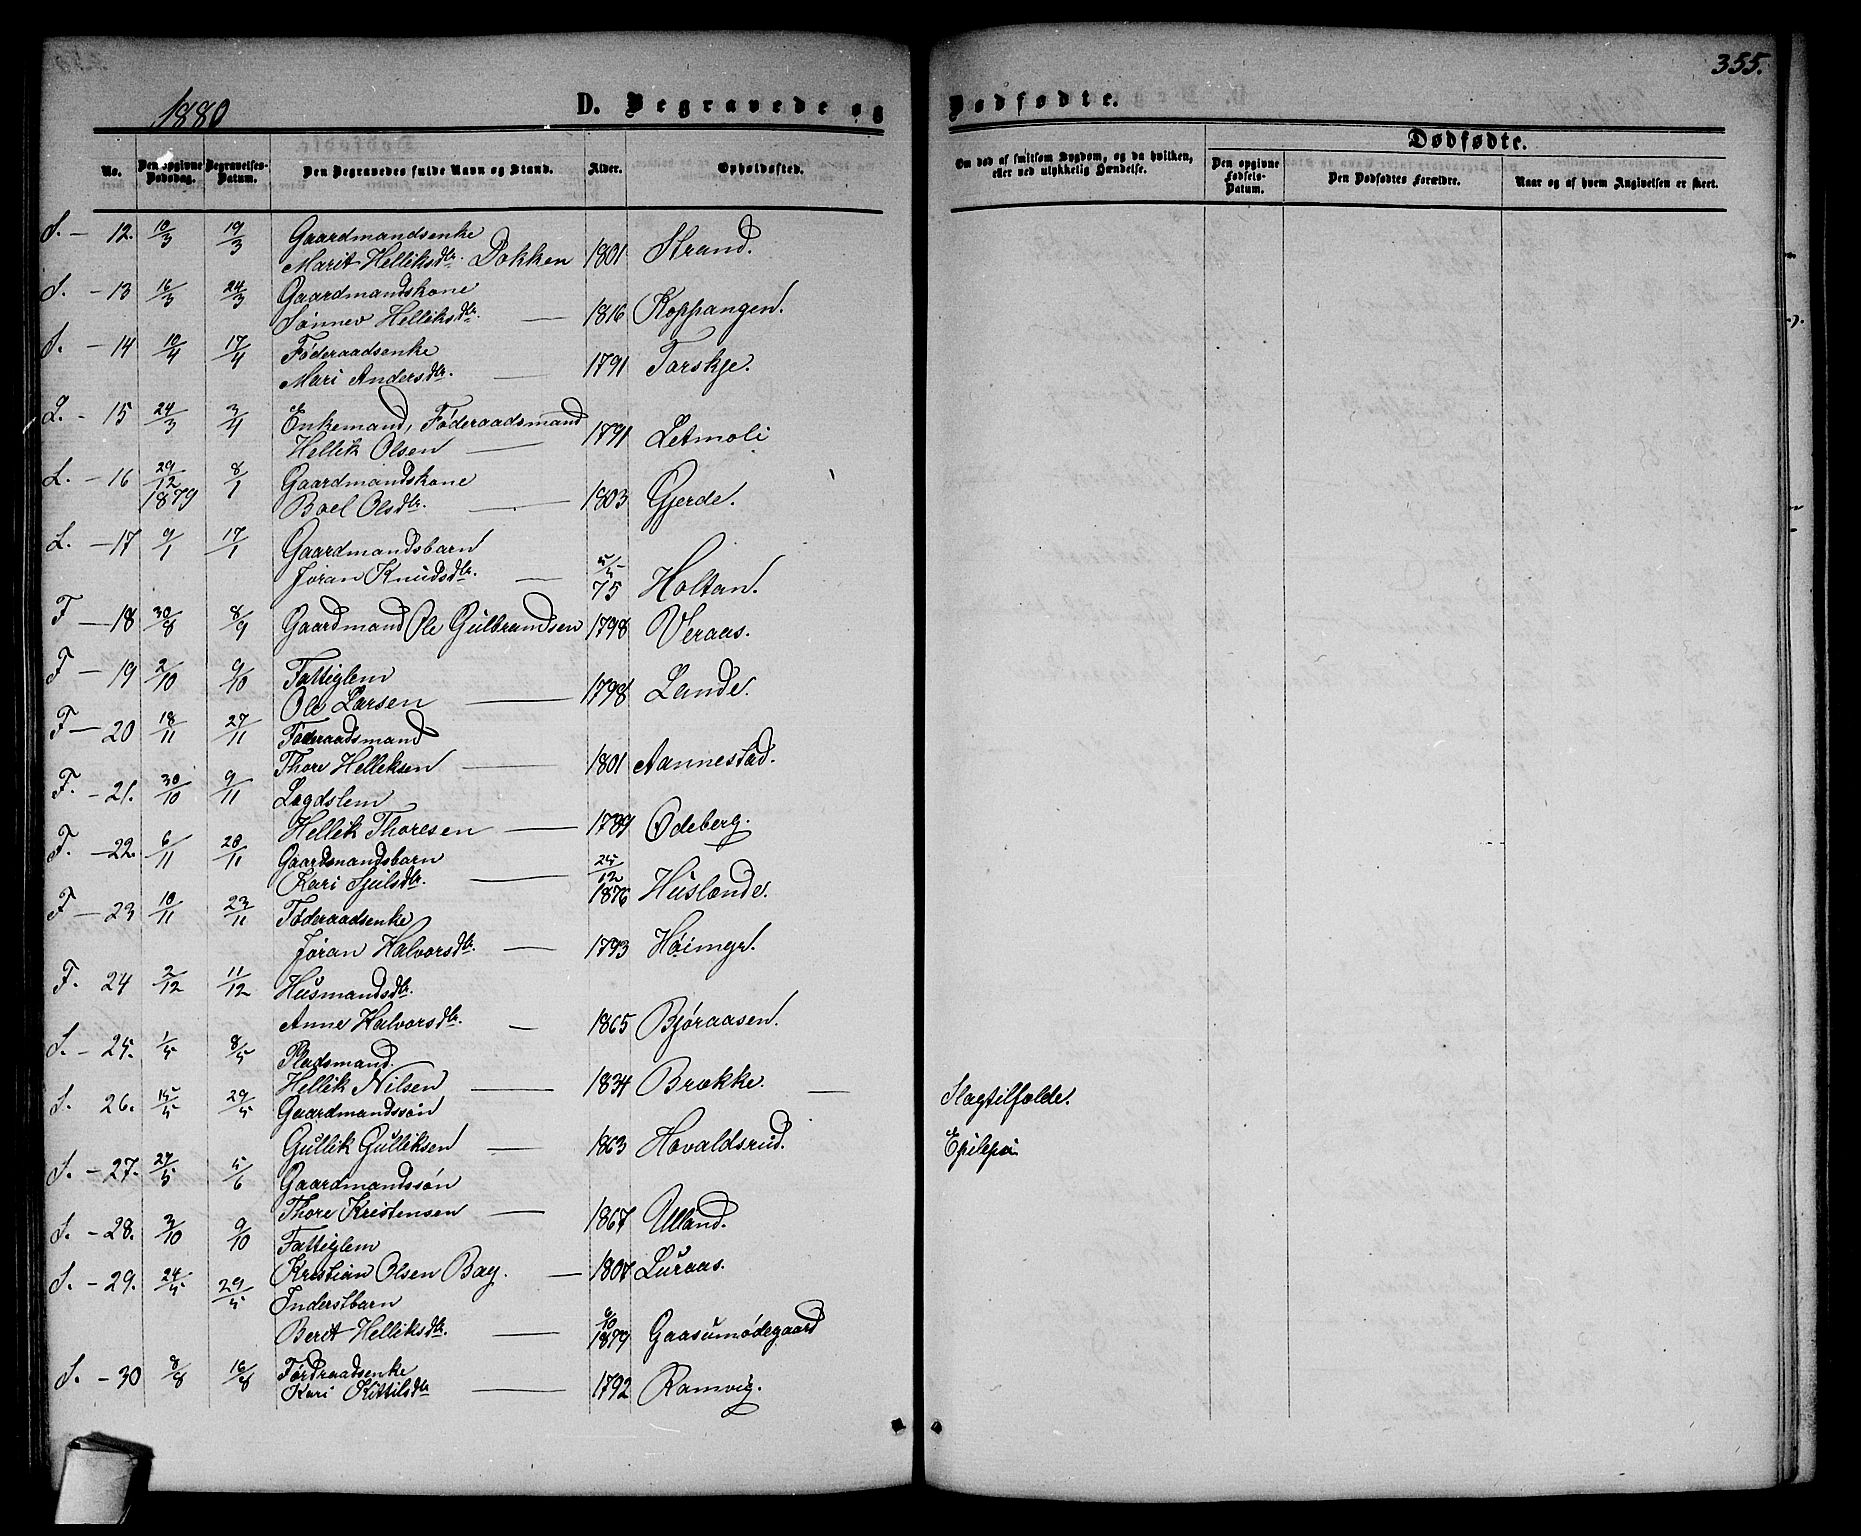 355.
1880 D. Begravede og Dødfødte.
Dødfødte.
No. Den opgivne Dødsdag. Begravelses-Datum. Den Begravedes fulde Navn og Stand. Alder. Opholdssted. Om død af smitsom Sygdom, og da hvilken, eller ved ulykkelig Hændelse. Den opgivne Fødsels-Datum. Den Dødfødtes Forældre. Naar og af hvem Angivelsen er skeet.
S. - 12. 10/3 19/3 Gaardmandsenke
Marit Helliksdtr. Dokken 1801 Strand.
S. - 13 16/3 24/3 Gaardmandskone
Sønnev Helliksdtr. — 1816 Koppangen.
S. - 14 10/4 17/4 Føderaadsenke
Mari Andersdtr. — 1791 Torskje.
L. - 15 24/3 3/4 Enkemand, Føderaadsmand
Hellik Olsen — 1791 Letmoli
L. - 16 29/12 1879 8/1 Gaardmandskone
Boel Olsdtr. — 1803 Gjerde.
L. - 17 9/1 17/1 Gaardmandsbarn
Jøran Knudsdtr. — 5/5 75 Holtan.
F - 18 30/8 8/9 Gaardmand Ole Gulbrandsen 1798 Veraas.
F - 19 2/10 9/10 Fattiglem
Ole Larsen — 1798 Lande.
F - 20 18/11 27/11 Føderaadsmand
Thore Helleksen — 1801 Aannestad.
F. - 21. 30/10 9/11 Lægdslem
Hellik Thoresen — 1789 Ødeberg.
F. - 22. 6/11 20/11 Gaardsmandsbarn
Kari Sjulsdtr. — 25/12 1876 Huslænde.
F - 23 10/11 23/11 Føderaadsenke
Jøran Halvorsdtr. — 1793 Høimyr.
F. 24 2/12 11/12 Husmandsdtr.
Anne Halvorsdtr. — 1865 Bjøraasen.
S. - 25. 1/5 8/5 Pladsmand.
Hellik Nilsen — 1834 Brække. — Slagtilfælde.
S. 26. 15/5 29/5 Gaardmandssøn
Gullik Gulliksen — 1863 Hovaldsrud. Epilepsi
S. - 27. 27/5 5/6 Gaardmandssøn
Thore Kristensen — 1867 Ulland.
S. - 28. 3/10 9/10 Fattiglem
Kristian Olsen Bay. — 1807 Luraas.
S. - 29. 24/5 29/5 Inderstbarn
Berit Helliksdtr. — 6/10 1879 Gaasumødegaard
S. - 30 8/8 16/8 Førdraadsenke
Kari Kittilsdtr — 1792 Ramvig.